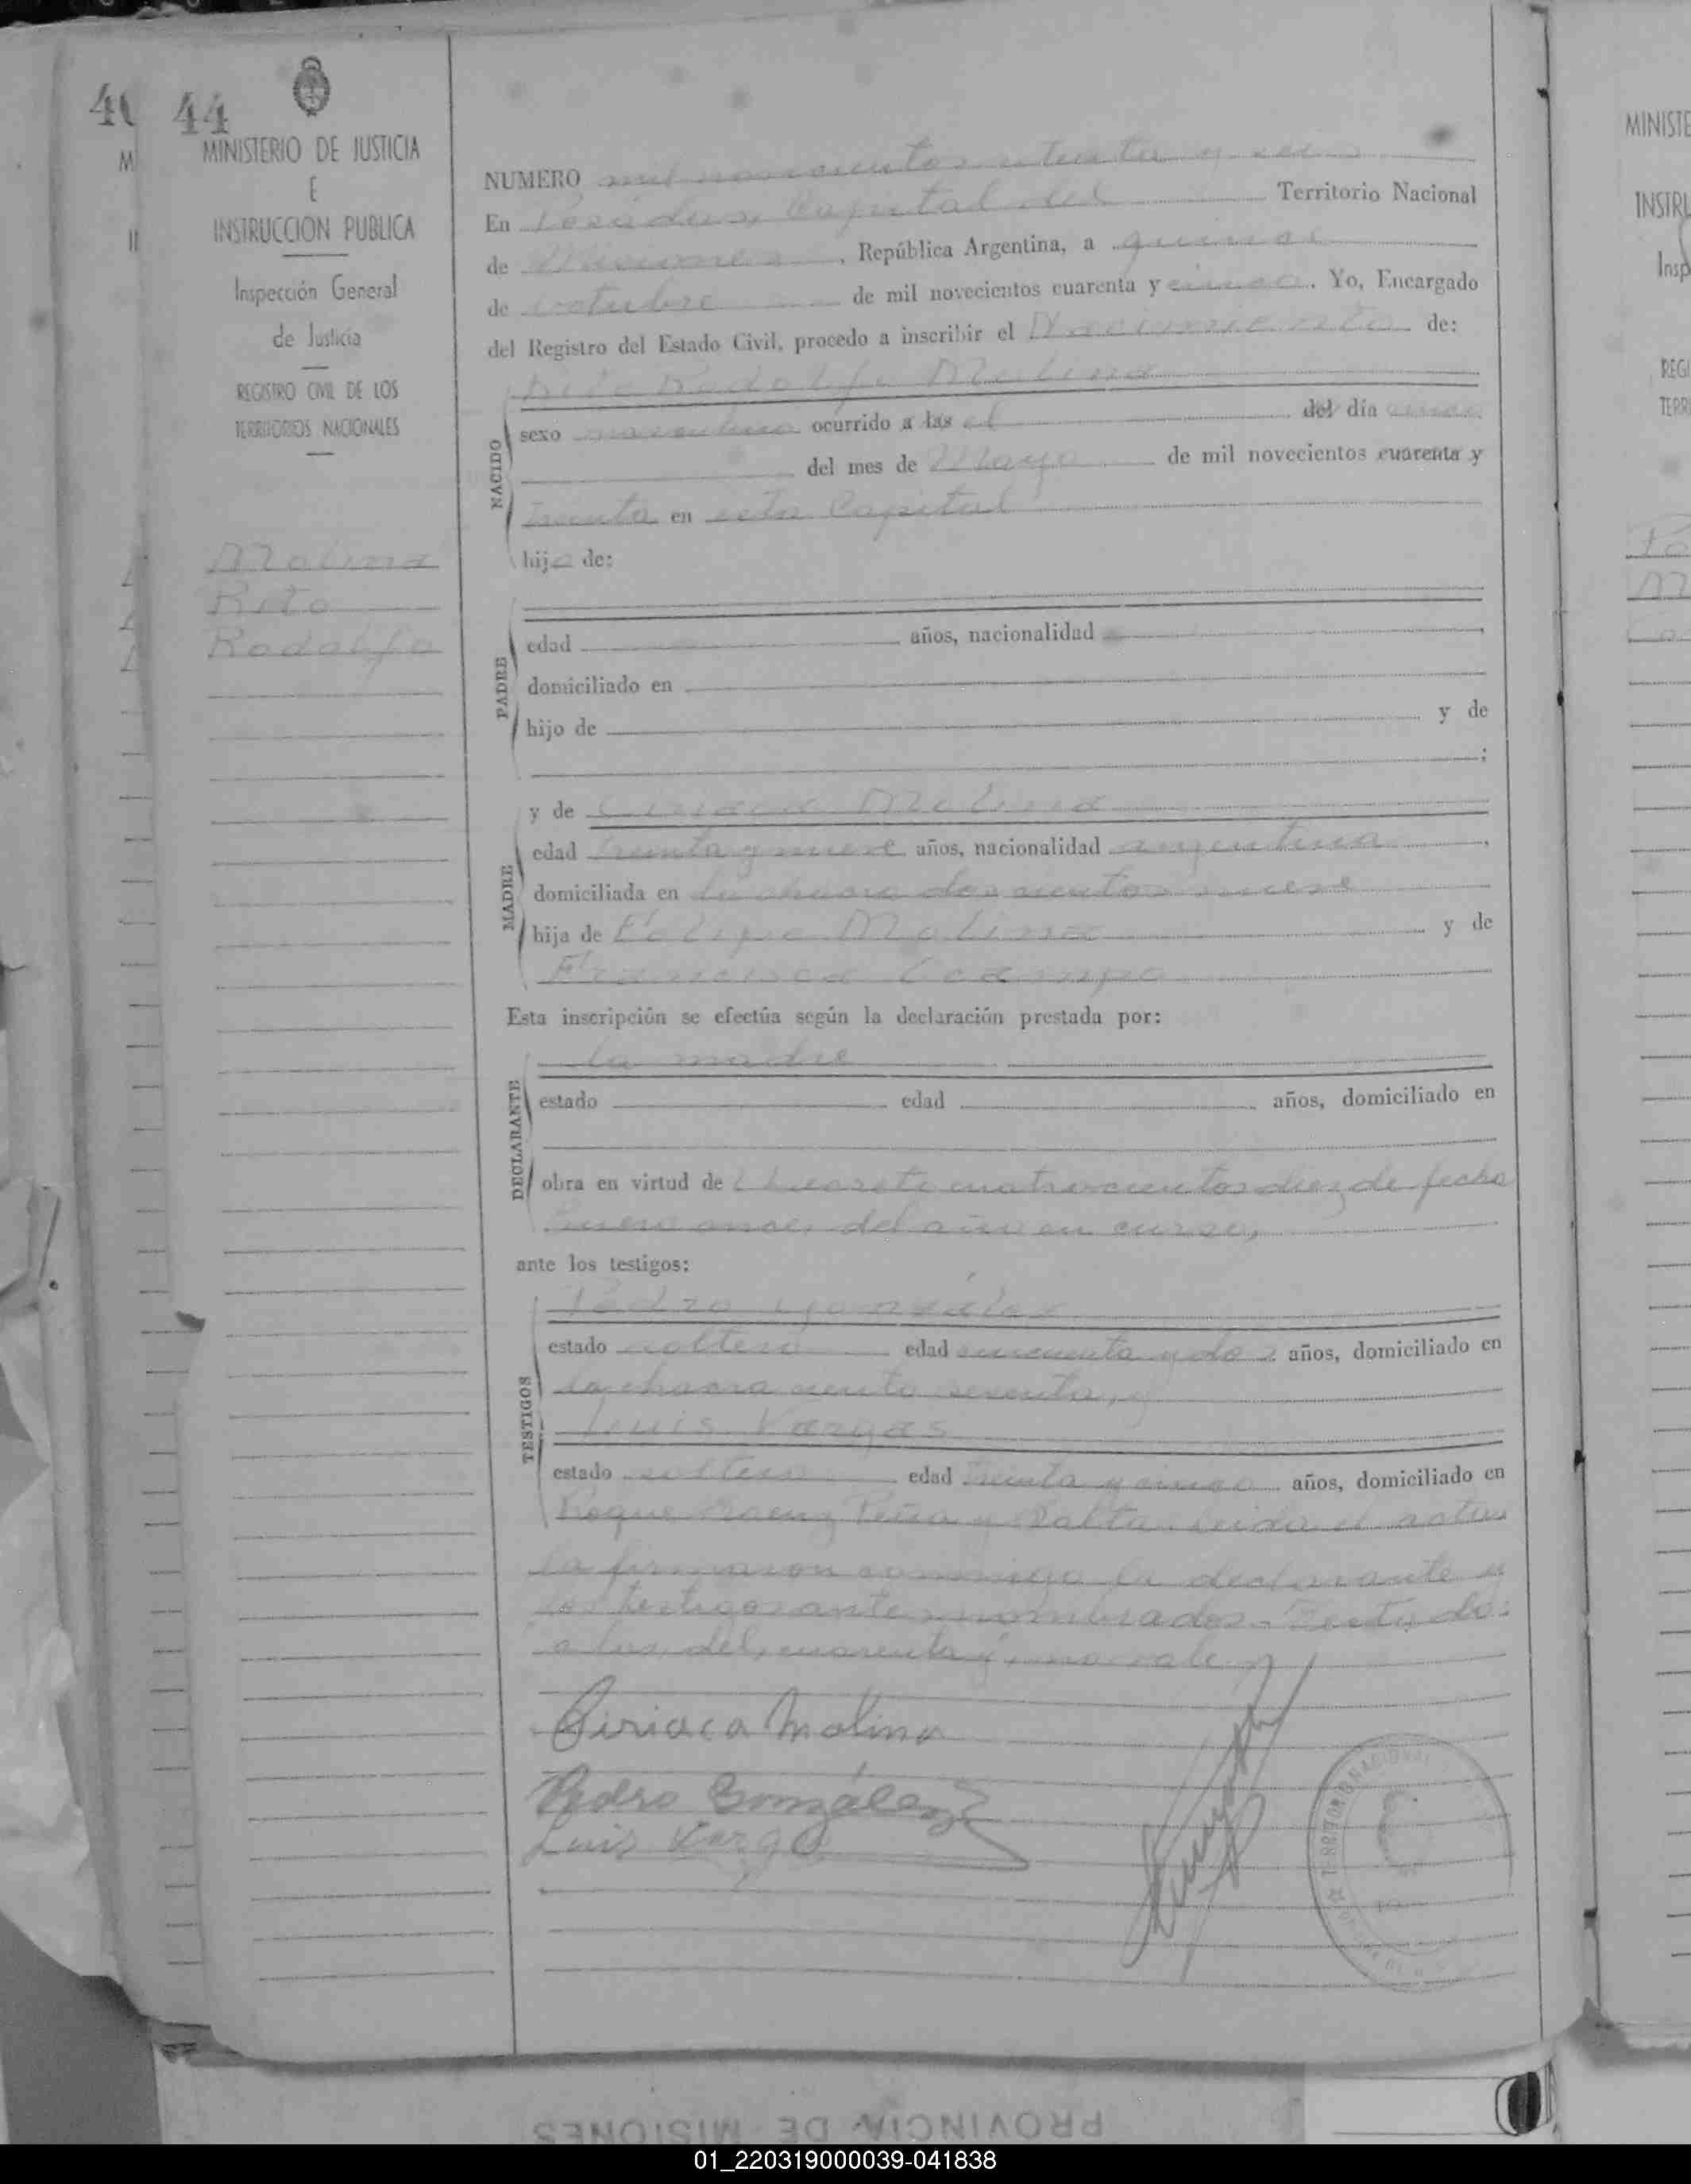 44
MINISTERIO DE JUSTICIA
E
INSTRUCCION PUBLICA
Inspección General
de Justicia
REGISTRO CIVIL DE LOS
TERRITORIOS NACIONALES
Molina
Rito
Rodolfo
NUMERO mil novecientos y seis
En Posadas, Capital del Territorio Nacional
de Misiones, República Argentina, a quince
de octubre de mil novecientos cuarenta y cinco. Yo, Encargado
del Registro del Estado Civil, procedo a inscribir el Nacimiento de:
Rito Rodolfo Molina
NACIDO
sexo masculino ocurrido a las el del día
del mes de Mayo de mil novecientos cuarenta y
treinta en esta Capital
hijo de:
PADRE
edad años, nacionalidad
domiciliado en
hijo de y de
;
MADRE
y de Ciriaca Molina
edad treinta y nueve años, nacionalidad argentina,
domiciliada en la chacra doscientos nueve
hija de Felipe Molina y de
Francisca Ocampo
Esta inscripción se efectúa según la declaración prestada por:
DECLARANTE
la madre
estado edad años, domiciliado en
obra en virtud de Decreto cuatrocientos diez de fecha
Enero once, del año en curso,
ante los testigos:
TESTIGOS
Pedro González
estado soltero edad cincuenta y dos años, domiciliado en
la chacra ciento sesenta, y
Luis Vargas
estado soltero edad treinta y cinco años, domiciliado en
Roque Saenz Peña y Salta. Leida el acta
la firmaron conmigo la declarante y
los testigos antes nombrados.- Testado:
a las, del, cuarenta y, no vale
Ciriaca Molina
Pedro González
Luis Vargas
TERRITORIO NACIONAL
MINISTE
INSTRU
Insp
REGI
TERRI
PROVINCIA DE MISIONES
01_220319000039-041838